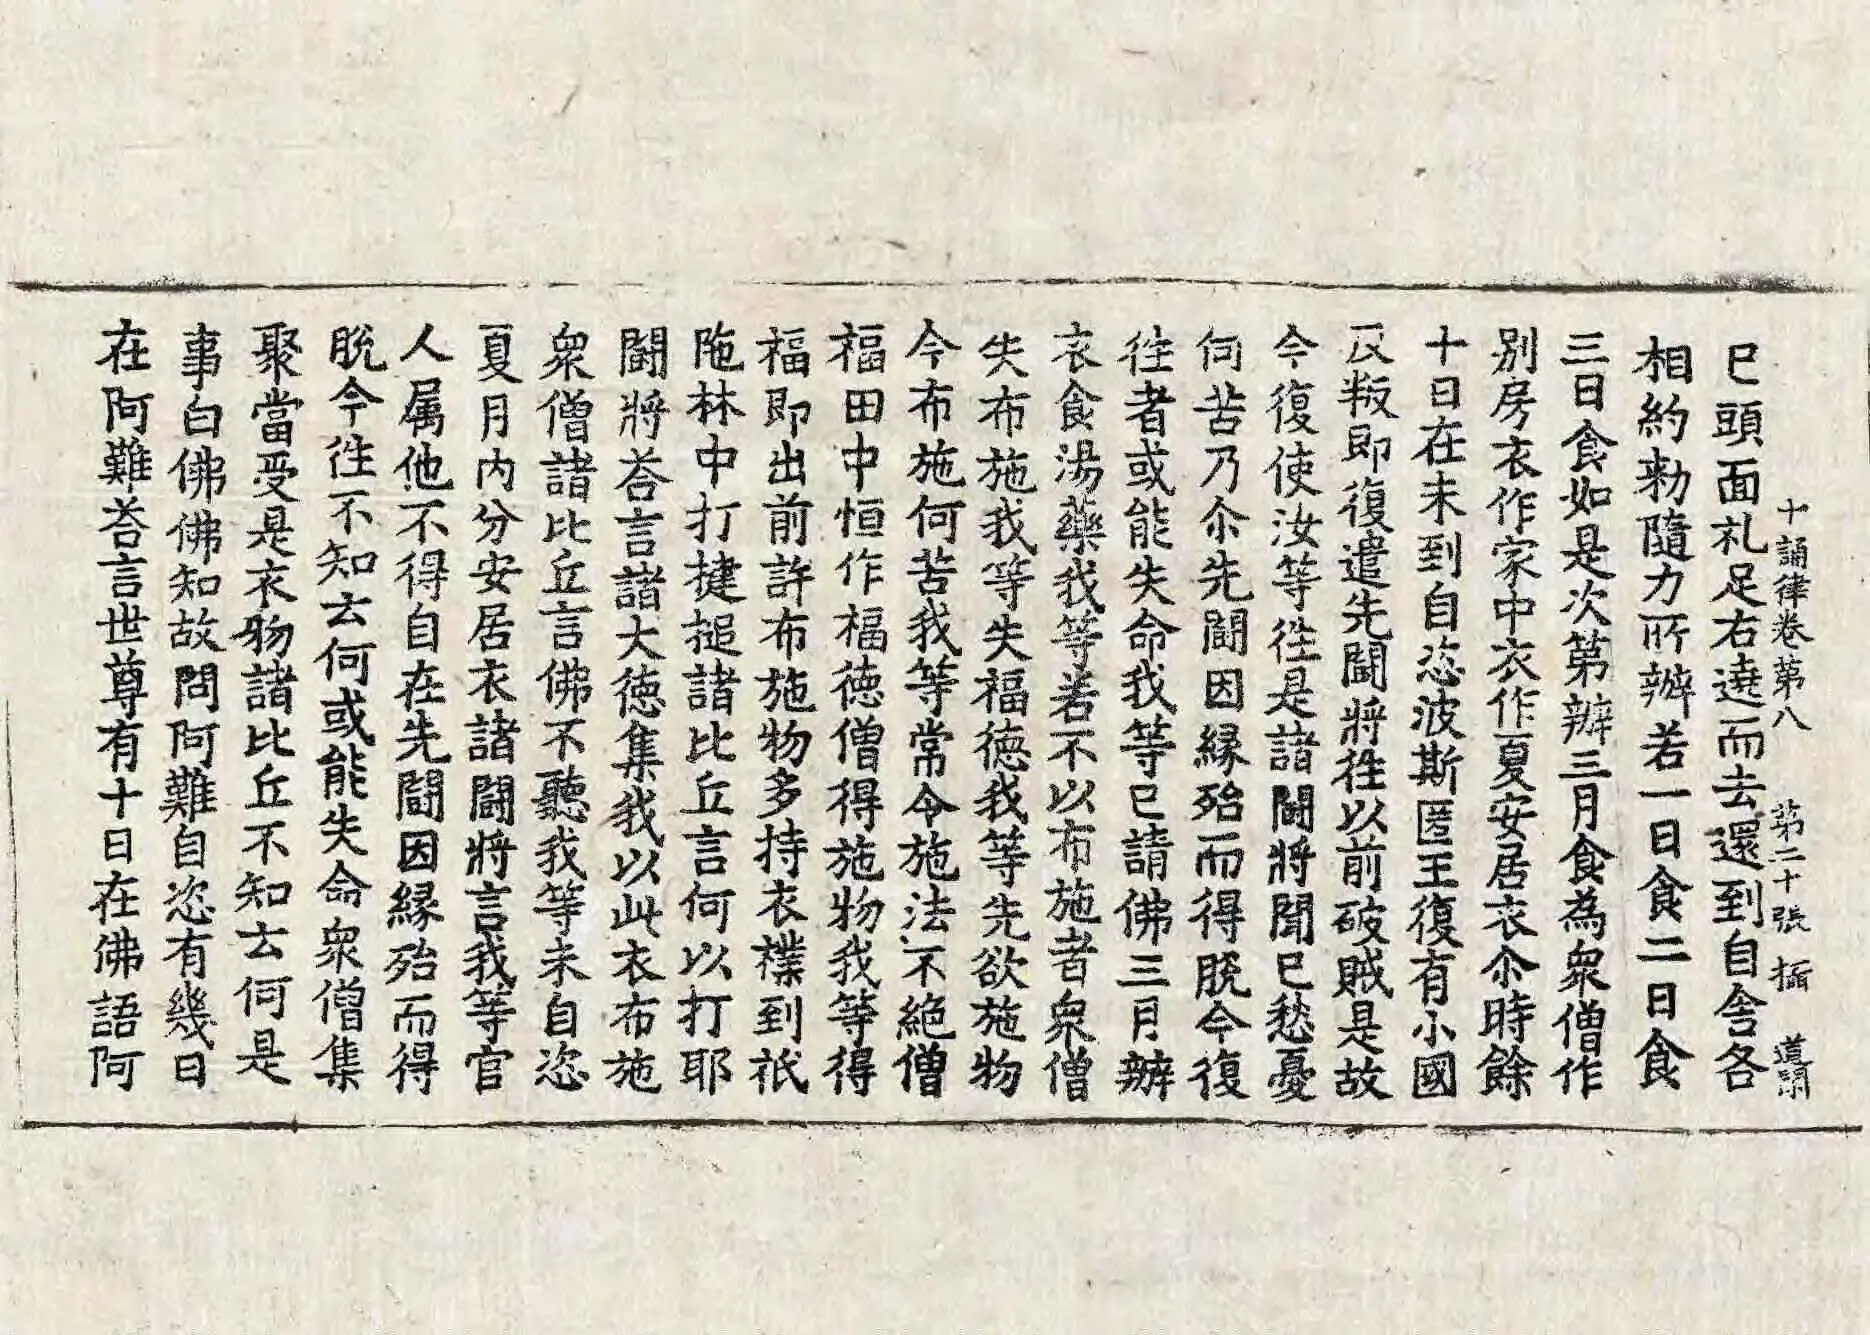 十誦律卷第八 第二十張 攝
已頭面礼足右遶而去還到自舍各
相約勑隨力所辦若一日食二日食
三日食如是次第辦三月食為衆僧作
別房衣作家中衣作夏安居衣尒時餘
十日在未到自恣波斯匿王復有小國
反叛即復遣先鬪將徃以前破賊是故
今復使汝等徃是諸鬪將聞已愁憂
何苦乃尒先鬪因縁殆而得脫今復
徃者或能失命我等已請佛三月辦
衣食湯藥我等若不以布施者衆僧
失布施我等失福徳我等先欲施物
今布施何苦我等常令施法不絶僧
福田中恒作福徳僧得施物我等得
福即出前許布施物多持衣襆到祇
陁林中打揵搥諸比丘言何以打耶
鬪將荅言諸大徳集我以此衣布施
衆僧諸比丘言佛不聽我等未自恣
夏月內分安居衣諸鬪將言我等官
人属他不得自在先鬪因縁殆而得
脫今徃不知云何或能失命衆僧集
聚當受是衣物諸比丘不知云何是
事白佛佛知故問阿難自恣有幾日
在阿難荅言世尊有十日在佛語阿